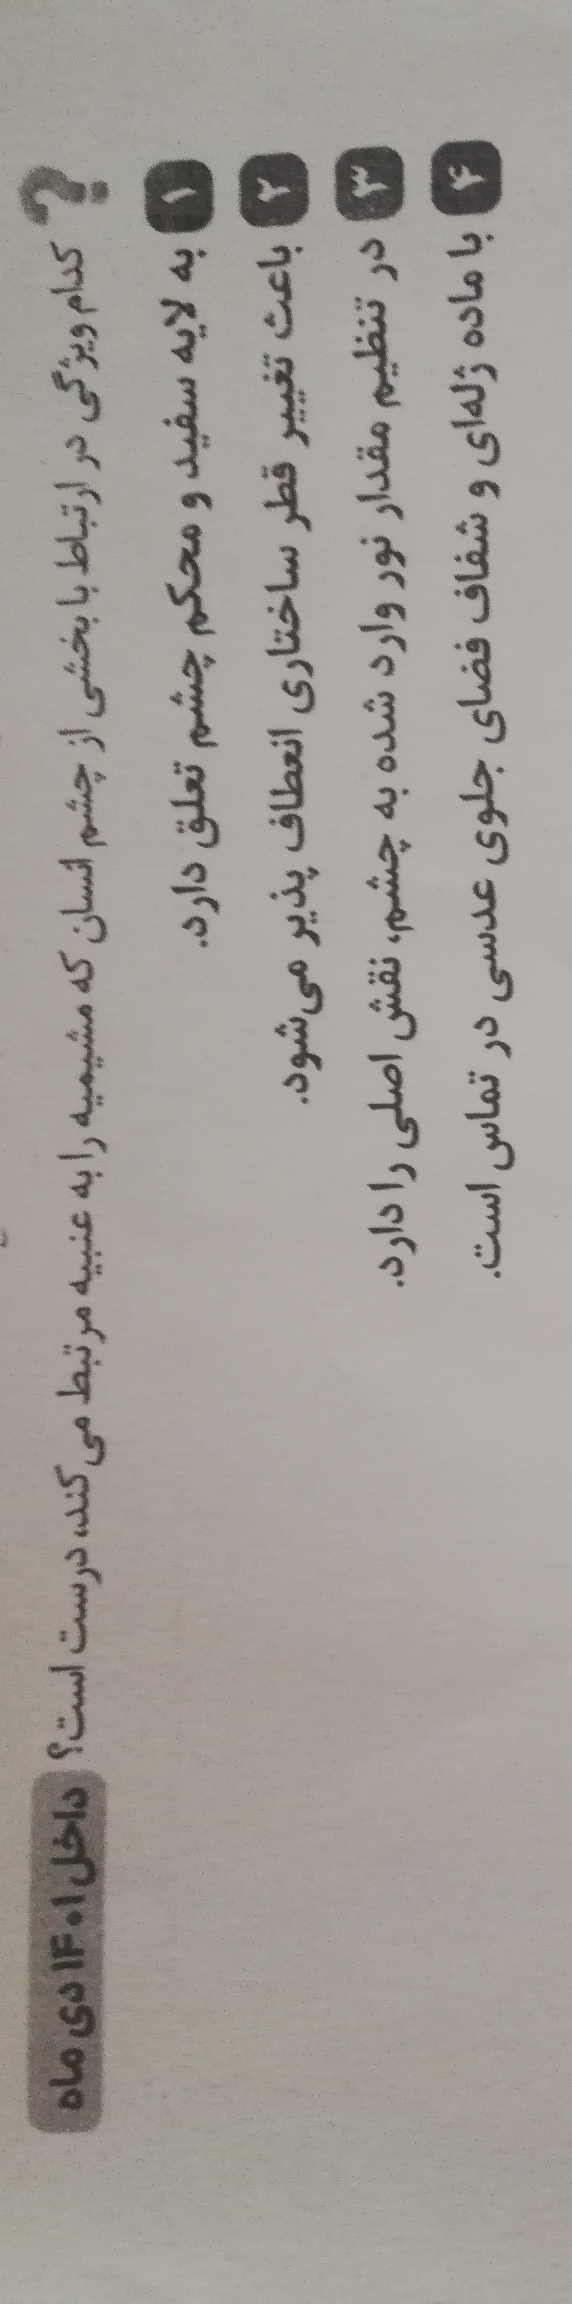 ? کدام ویژگی در ارتباط با بخشی از چشم انسان که مشیمیه را به عنبیه مرتبط می‌کند، درست است؟ داخل ۱۴۰۱ دی ماه
۱ به لایه سفید و محکم چشم تعلق دارد.
۲ باعث تغییر قطر ساختاری انعطاف پذیر می‌شود.
۳ در تنظیم مقدار نور وارد شده به چشم، نقش اصلی را دارد.
۴ با ماده ژله‌ای و شفاف فضای جلوی عدسی در تماس است.